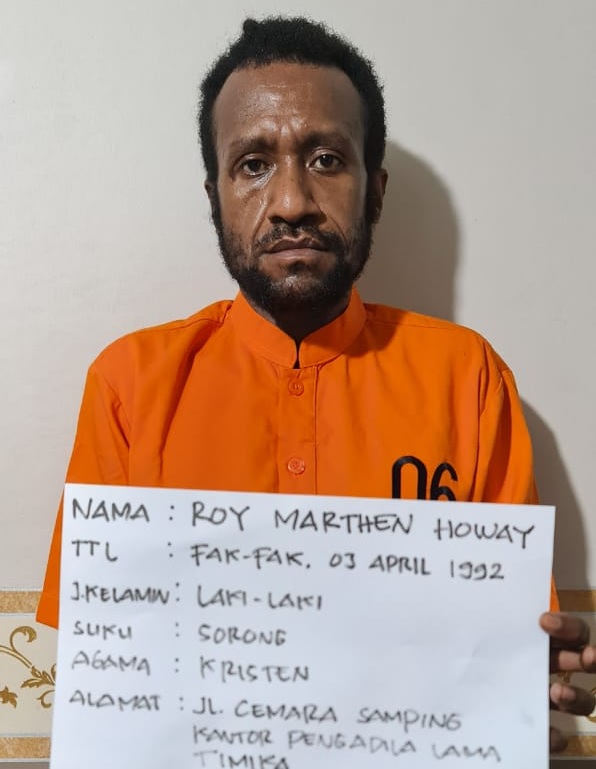 06
NAMA : ROY MARTHEN HOWAY
TTL : FAK-FAK, 03 APRIL 1992
J.KELAMIN : LAKI-LAKI
SUKU : SORONG
AGAMA : KRISTEN
ALAMAT : JL. CEMARA SAMPING
KANTOR PENGADILA LAMA
TIMIKA